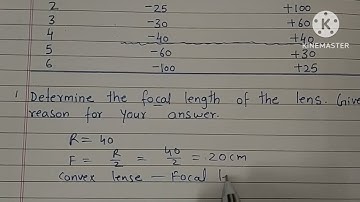 2 -25 +100
3 -30 +60
4 -40 +40
5 -60 +30
6 -100 +25
KINEMASTER
1 Determine the focal length of the lens. Give
reason for your answer.
R = 40
F = R/2 = 40/2 = 20cm
Convex lense – Focal l